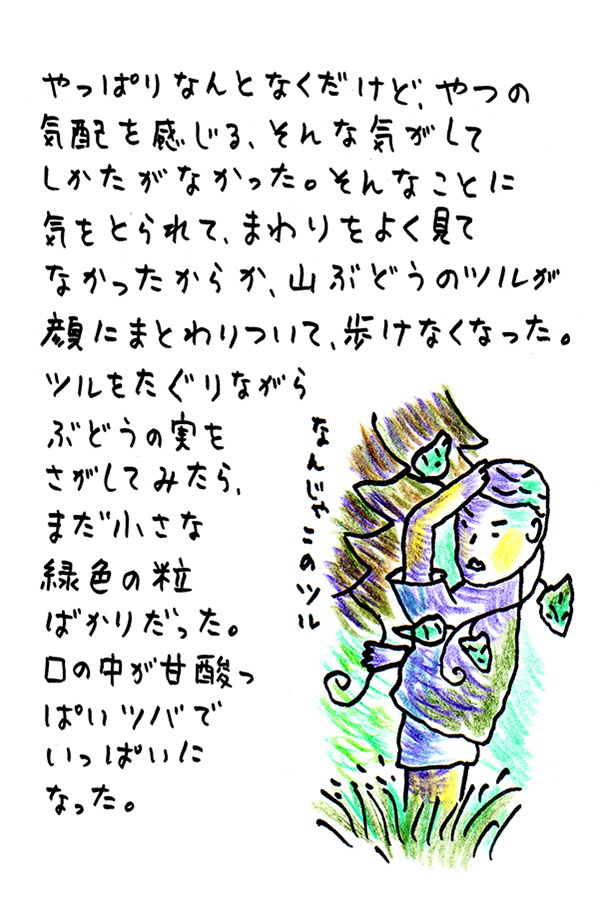 やっぱりなんとなくだけど、やつの
気配を感じる、そんな気がして
しかたがなかった。そんなことに
気をとられて、まわりをよく見て
なかったからか、山ぶどうのツルが
顔にまとわりついて、歩けなくなった。
ツルをたぐりながら
ぶどうの実を
さがしてみたら、
まだ小さな
緑色の粒
ばかりだった。
口の中が甘酸っ
ぱいツバで
いっぱいに
なった。
なんじゃこのツル